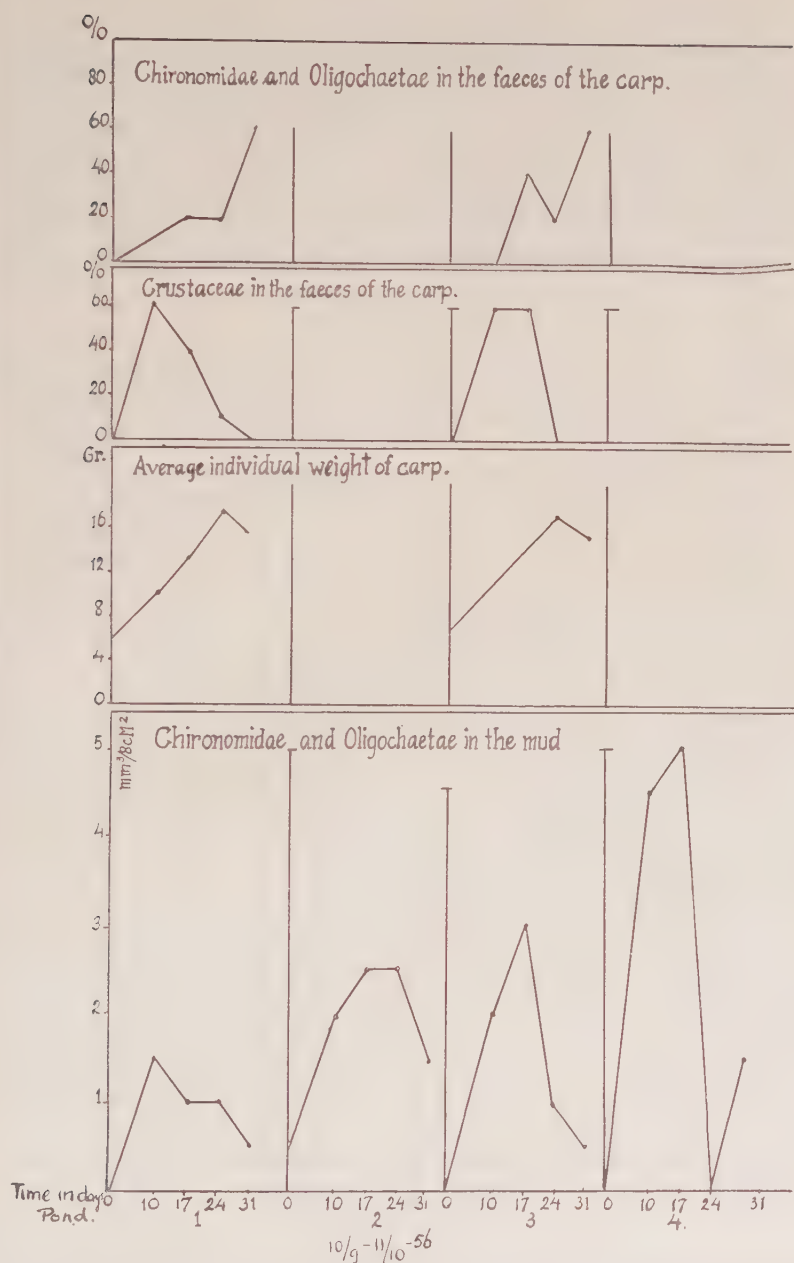 %
Chironomidae and Oligochaetae in the faeces of the carp.
80
60
40
20
0
%
Crustaceae in the faeces of the carp.
60
40
20
0
Gr.
Average individual weight of carp.
16
12
8
4
0
mm³/8cM²
Chironomidae and Oligochaetae in the mud
5
4
3
2
1
Time in day 0 10 17 24 31 0 10 17 24 31 0 10 17 24 31 0 10 17 24 31
Pond. 1 2 3 4.
10/9-11/10-56